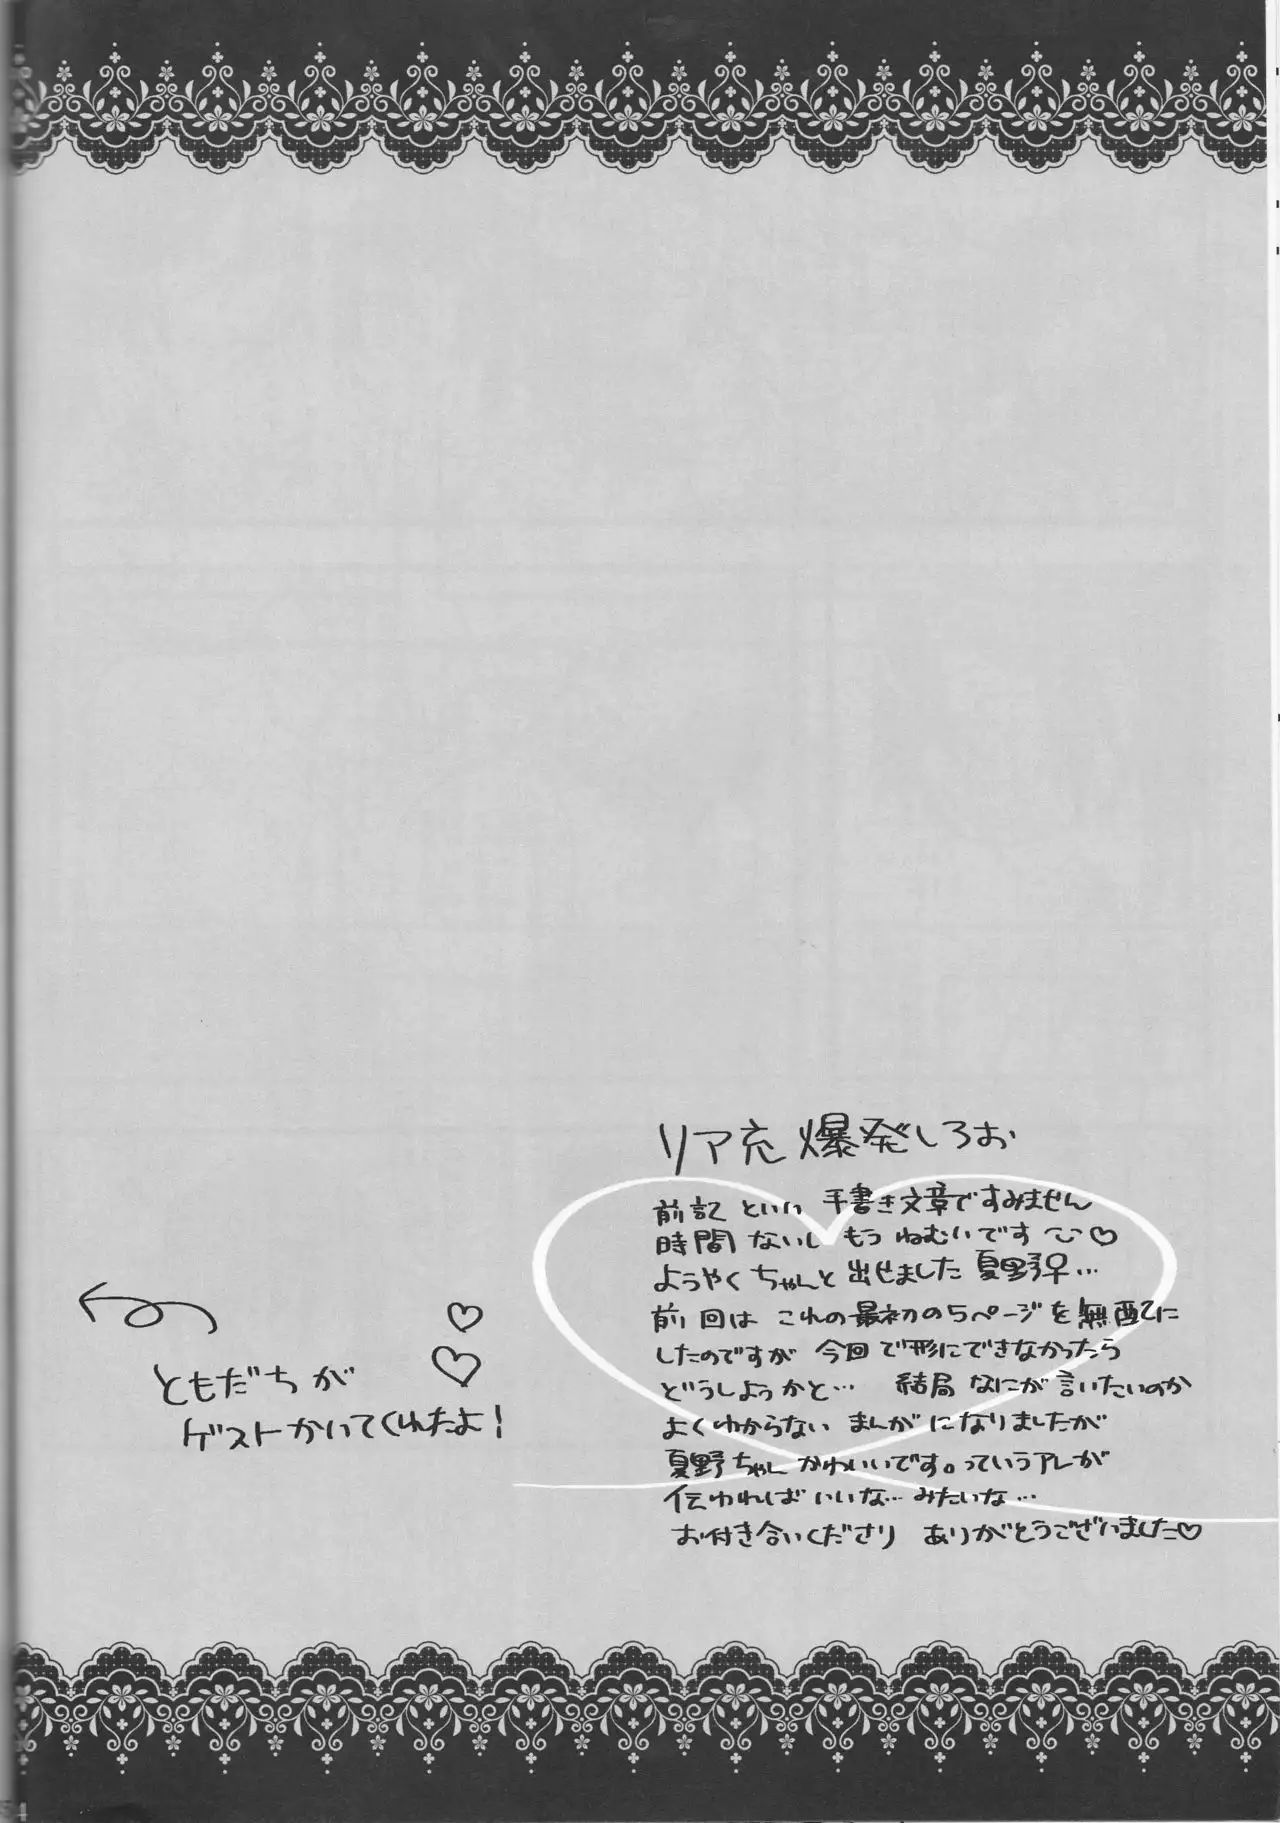 リア充爆発しろお
前記といい 手書き文章ですみません
時間ないし もう ねむいです♡
ようやくちゃんと出せました夏野♀…
前回は これの最初の5ページを無配に
したのですが 今回で形にできなかったら
どうしようかと… 結局 なにが言いたいのか
よくわからない まんがになりましたが
夏野ちゃん かわいいです。っていうアレが
伝わればいいな… みたいな…
お付き合いくださり ありがとうございました♡
ともだちが
ゲストかいてくれたよ!